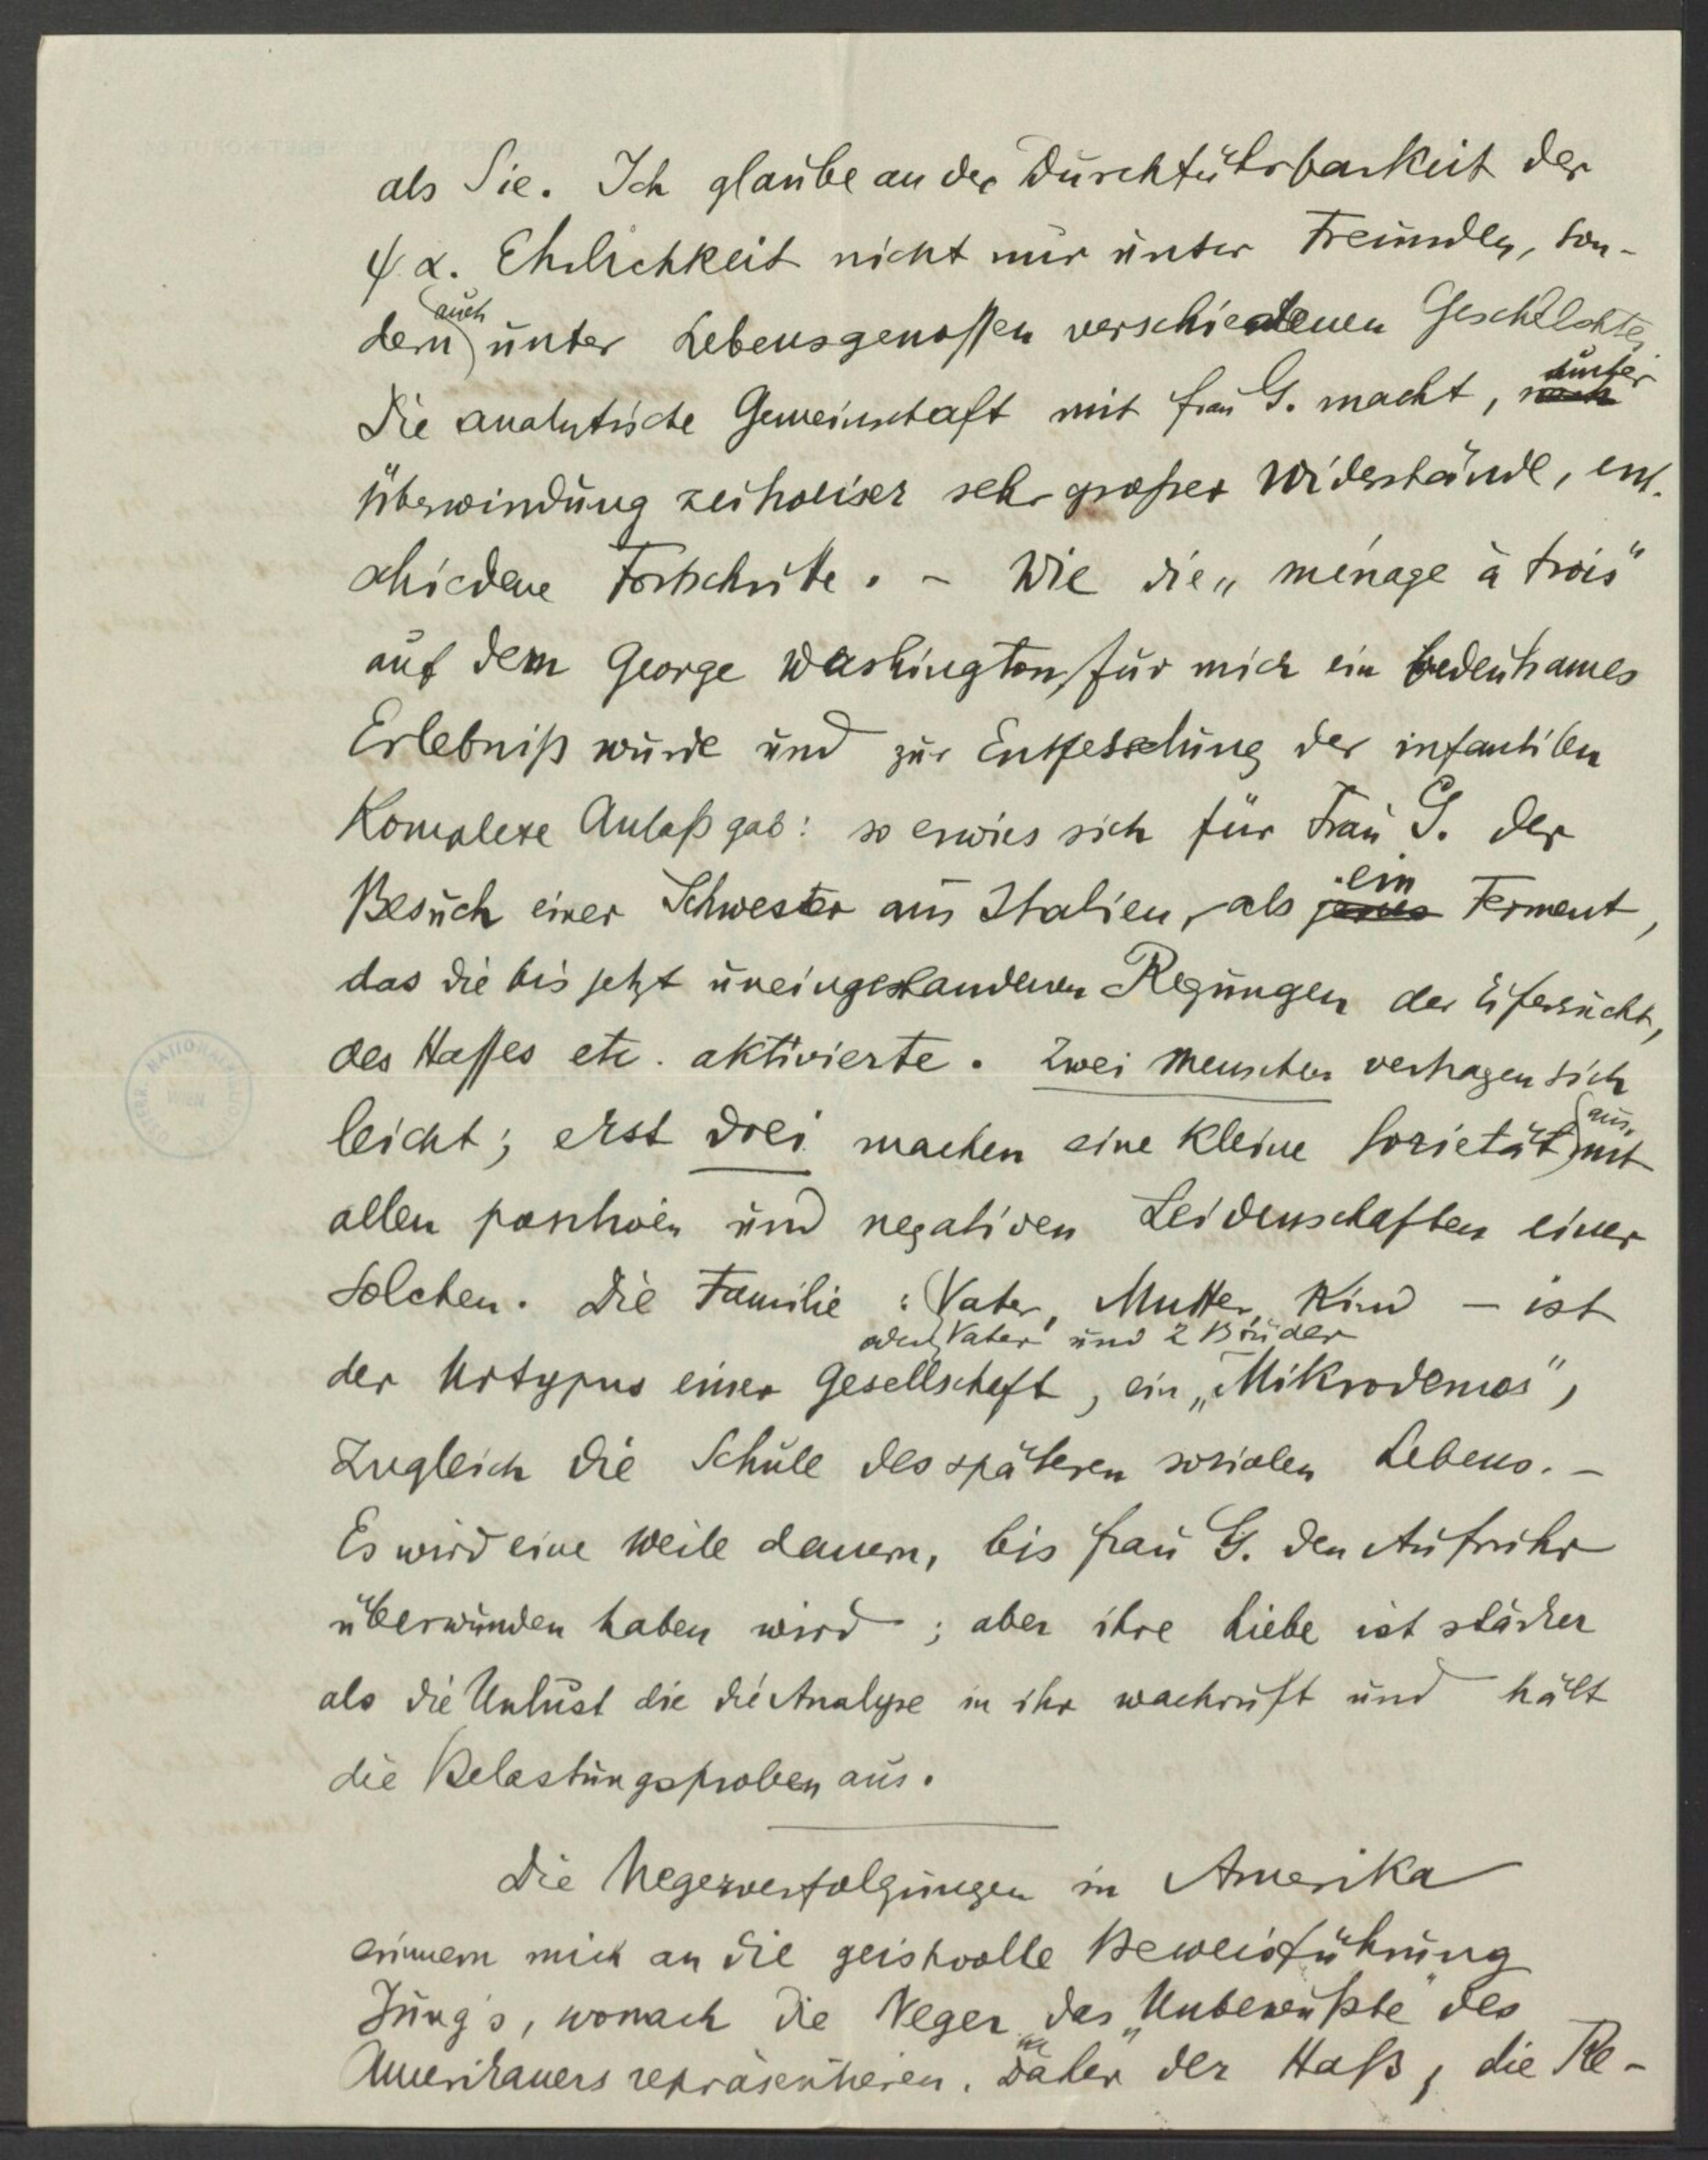 als Sie. Ich glaube an der Durchführbarkeit der
ψ α. Ehrlichkeit nicht nur unter Freunden, son-
dern auch unter Lebensgenossen verschiedenen Geschlechtes.
Die analytische Gemeinschaft mit Frau G. macht, nach unter
Überwindung zeitweiser sehr großer Widerstände, ent-
schiedene Fortschritte. – Wie die „ménage à trois“
auf dem George Washington für mich ein bedeutsames
Erlebniß wurde und zur Entfesselung der infantilen
Komplexe Anlaß gab: so erwies sich für Frau G. der
Besuch einer Schwester aus Italien, als jenes ein Ferment,
das die bis jetzt uneingestandenen Regungen der Eifersucht,
des Hasses etc. aktivierte. Zwei Menschen vertragen sich
leicht; erst drei machen eine kleine Sozietät aus, mit
allen positiven und negativen Leidenschaften einer
solchen. Die Familie : Vater, Mutter, Kind – ist
oder Vater und 2 Brüder
der Urtypus einer Gesellschaft, ein „Mikrodemos“,
zugleich die Schule des späteren sozialen Lebens. –
Es wird eine Weile dauern, bis Frau G. den Aufruhr
überwunden haben wird; aber ihre Liebe ist stärker
als die Unlust die die Analyse in ihr wachruft und hält
die Belastungsproben aus.
Die Negerverfolgungen in Amerika
erinnern mich an die geistvolle Beweisführung
Jung's, wonach die Neger das „Unbewußte“ des
Amerikaners repräsentieren. Daher der Haß, die Re-